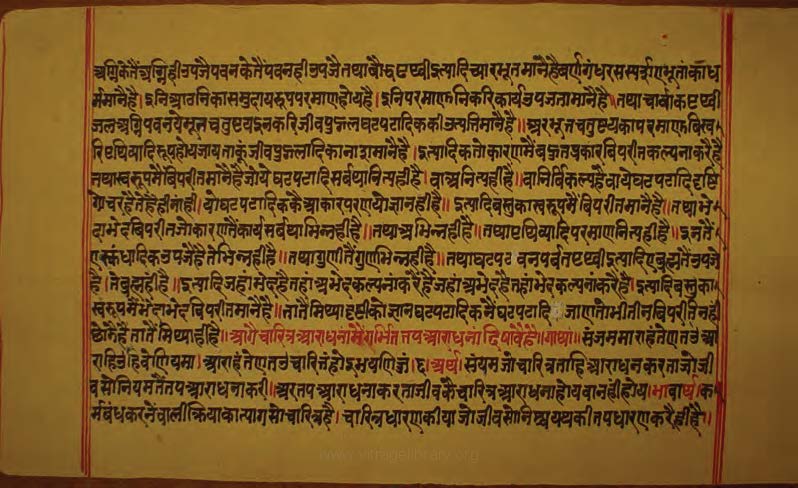 अग्निकेतैं अग्निही उपजै पवनकेतैं पवनही उपजै तथा बौद्ध पृथ्वी इत्यादि च्यार भूत मानैहै बर्ण गंध रस स्पर्श ए भूतांका धर
र्म मानैहै। इनि आठनिका समुदायरूप परमाणु होय है। इनि परमाणुनिकरि कार्य उपजता मानै है॥ तथा चार्वाक पृथ्वी
जल अग्नि पवन ये भूत चतुष्टय इनकरि जीव पुद्गल घटपटादिककी उत्पत्ति मानै है॥ अर भूत चतुष्टयका परमाणु बिख
रि पृथिव्यादिरूप होय जाय ताकूं जीव पुद्गलादिका नाश मानै है। इत्यादिक तो कारणमैं बहुत प्रकार बिपरीत कल्पना करै है
तथा स्वरूपमैं बिपरीत मानै है जो ये घटपटादि सर्वथा नित्यही है। वा अनित्यही है॥ वा निर्विकल्प है वा ये घटपटादि दृष्टि
गोचर है ते हैही नाही। यो घटपटादिककै आकार परणयो ज्ञानही है॥ इत्यादि बस्तुका स्वरूपमैं बिपरीत मानै है॥ तथा भे
दाभेद बिपरीत जो कारणतैं कार्य सर्वथा भिन्नही है॥ तथा अभिन्नही है॥ तथा पृथिव्यादि परमाणु नित्यही है॥ इनतैं
स्कंधादिक उपजै है ते भिन्नही है॥ तथा गुणीतैं गुण भिन्नही है॥ तथा घट पट वन पर्वत पृथ्वी इत्यादि ए ब्रह्मतैं उपजे
है। ते ब्रह्मही है॥ इत्यादि जहां भेद है तहां अभेद कल्पना करै है जहां अभेद है तहां भेद कल्पना करै है॥ इत्यादि बस्तुका
स्वरूपमैं भेदाभेद बिपरीत मानै है॥ तातैं मिथ्यादृष्टीको ज्ञान घटपटादिकनैं घटपटादि जाणतो भी तीन बिपरीतनैं नही
छोडै है तातैं मिथ्याही है॥ आगैं चारित्र आराधनामैं गर्भित तप आराधनां दिषावै है॥ गाथा॥ संजममाराहंतेण तउ आ
राहिउ हवे णियमा। आराहंतेण तउ चारित्तं होइ भयणिज्जं।६। अर्थ। संयम जो चारित्र ताहि आराधन करता जो जी
व सो नियमतैं तप आराधना करी॥ अर तप आराधना करता जीवकै चारित्र आराधना होय वा नही होय। भावार्थ। क
र्मबंध करनेंवाली क्रियाका त्याग सो चारित्र है। चारित्र धारण कीया जो जीव सो निश्चयथकी तप धारण करैही है॥
www.vitragelibrary.org